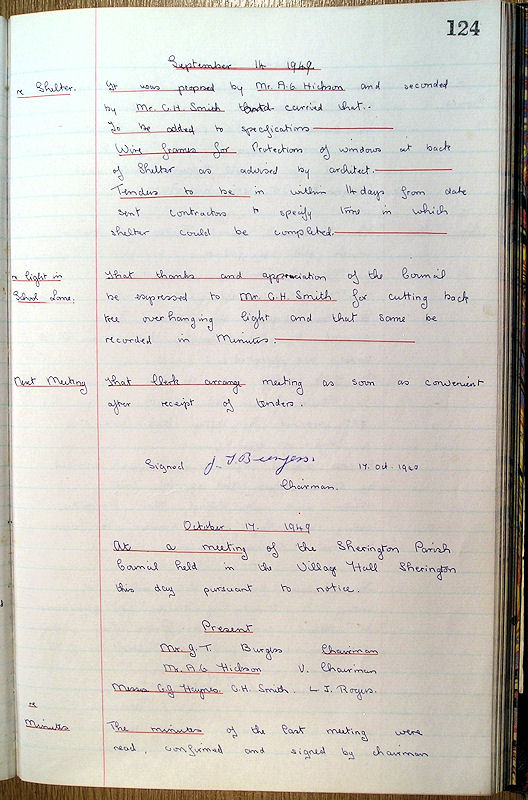 124
September 14 1949
re Shelter. It was proposed by Mr. A.G. Hickson and seconded
by Mr. C.H. Smith and carried that..
To be added to specifications
Wire frames for Protection of windows at back
of Shelter as advised by architect.
Tenders to be in within 14 days from date
sent contractors to specify time in which
shelter could be completed.
re light in That thanks and appreciation of the Council
School Lane. be expressed to Mr. C.H. Smith for cutting back
tree overhanging light and that same be
recorded in Minutes.
Next Meeting That Clerk arrange meeting as soon as convenient
after receipt of tenders.
Signed J. T. Burgess. 17. Oct. 1949
Chairman.
October 17. 1949
At a meeting of the Sherington Parish
Council held in the Village Hall Sherington
this day pursuant to notice.
Present
Mr. J.T. Burgess Chairman
Mr. A.G. Hickson V. Chairman
Messrs C.J. Haynes C.H. Smith. L. J. Rogers.
re
Minutes The minutes of the last meeting were
read, confirmed and signed by chairman